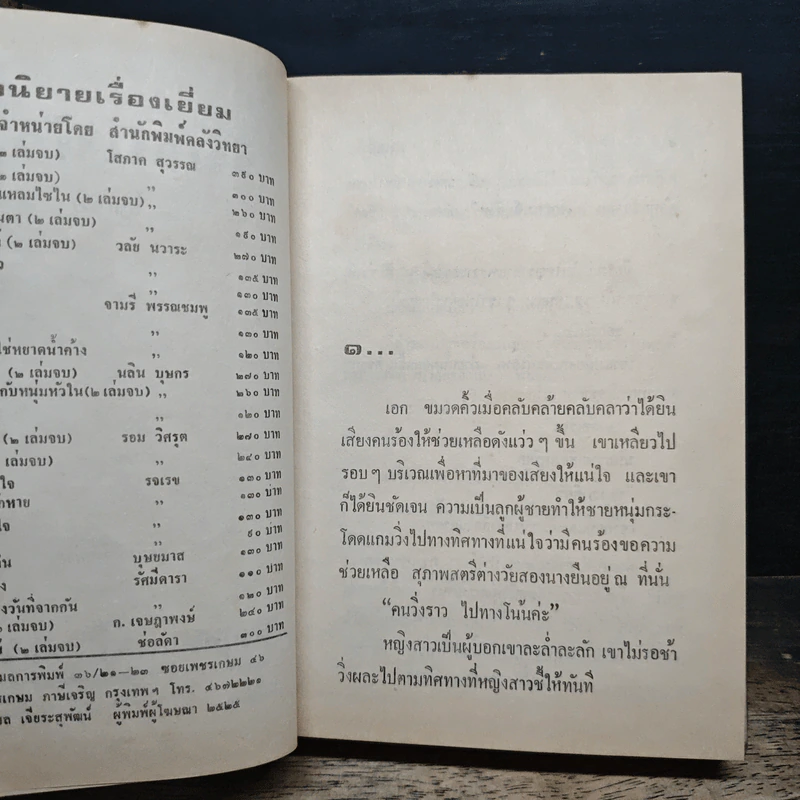 นิยายเรื่องเยี่ยม
จำหน่ายโดย สำนักพิมพ์คลังวิทยา
๒ เล่มจบ) โสภาค สุวรรณ ๓๙๐ บาท
๒ เล่มจบ) ,,
แหลมไซใน (๒ เล่มจบ) ,, ๑๐๐ บาท
นตา (๒ เล่มจบ) ,, ๒๖๐ บาท
(๒ เล่มจบ) วลัย นวาระ ๑๙๐ บาท
,, ๒๗๐ บาท
,, ๑๓๕ บาท
จามรี พรรณชมพู ๑๓๐ บาท
,, ๑๓๕ บาท
ใช่หยาดน้ำค้าง ,, ๑๓๐ บาท
(๒ เล่มจบ) นลิน บุษกร ๑๒๐ บาท
กับหนุ่มหัวใน(๒ เล่มจบ) ,, ๒๗๐ บาท
,, ๒๖๐ บาท
(๒ เล่มจบ) รอม วิศรุต ๑๒๐ บาท
เล่มจบ) ,, ๒๗๐ บาท
ใจ รจเรข ๒๔๐ บาท
ทาย ,, ๑๓๐ บาท
ใจ ,, ๑๓๐ บาท
,, ๑๓๐ บาท
บุษยมาส ๙๐ บาท
รัศมีดารา ๑๓๐ บาท
งวันที่จากกัน ,, ๑๑๐ บาท
เล่มจบ) ก. เจษฎาพงษ์ ๑๒๐ บาท
(๒ เล่มจบ) ช่อลัดา ๒๔๐ บาท
๓๐๐ บาท
มลการพิมพ์ ๓๖/๒๑—๒๓ ซอยเพชรเกษม ๔๖
รเกษม ภาษีเจริญ กรุงเทพฯ โทร. ๔๖๗๒๒๒๑
เจียระสุพัฒน์ ผู้พิมพ์ผู้โฆษณา ๒๕๒๕
๑...
เอก ขมวดคิ้วเมื่อคลับคล้ายคลับคลาว่าได้ยิน
เสียงคนร้องให้ช่วยเหลือดังแว่ว ๆ ขึ้น เขาเหลียวไป
รอบ ๆ บริเวณเพื่อหาที่มาของเสียงให้แน่ใจ และเขา
ก็ได้ยินชัดเจน ความเป็นลูกผู้ชายทำให้ชายหนุ่มกระ-
โดดแกมวิ่งไปทางทิศทางที่แน่ใจว่ามีคนร้องขอความ
ช่วยเหลือ สุภาพสตรีต่างวัยสองนางยืนอยู่ ณ ที่นั่น
“คนวิ่งราว ไปทางโน้นค่ะ”
หญิงสาวเป็นผู้บอกเขาละล่ำละลัก เขาไม่รอช้า
วิ่งผละไปตามทิศทางที่หญิงสาวชี้ให้ทันที